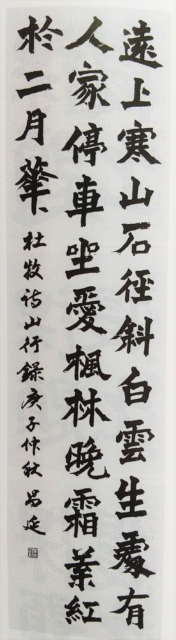 遠上寒山石徑斜白雲生處有
人家停車坐愛楓林晚霜葉紅
於二月華 杜牧詩山行錄庚子仲秋 昌延